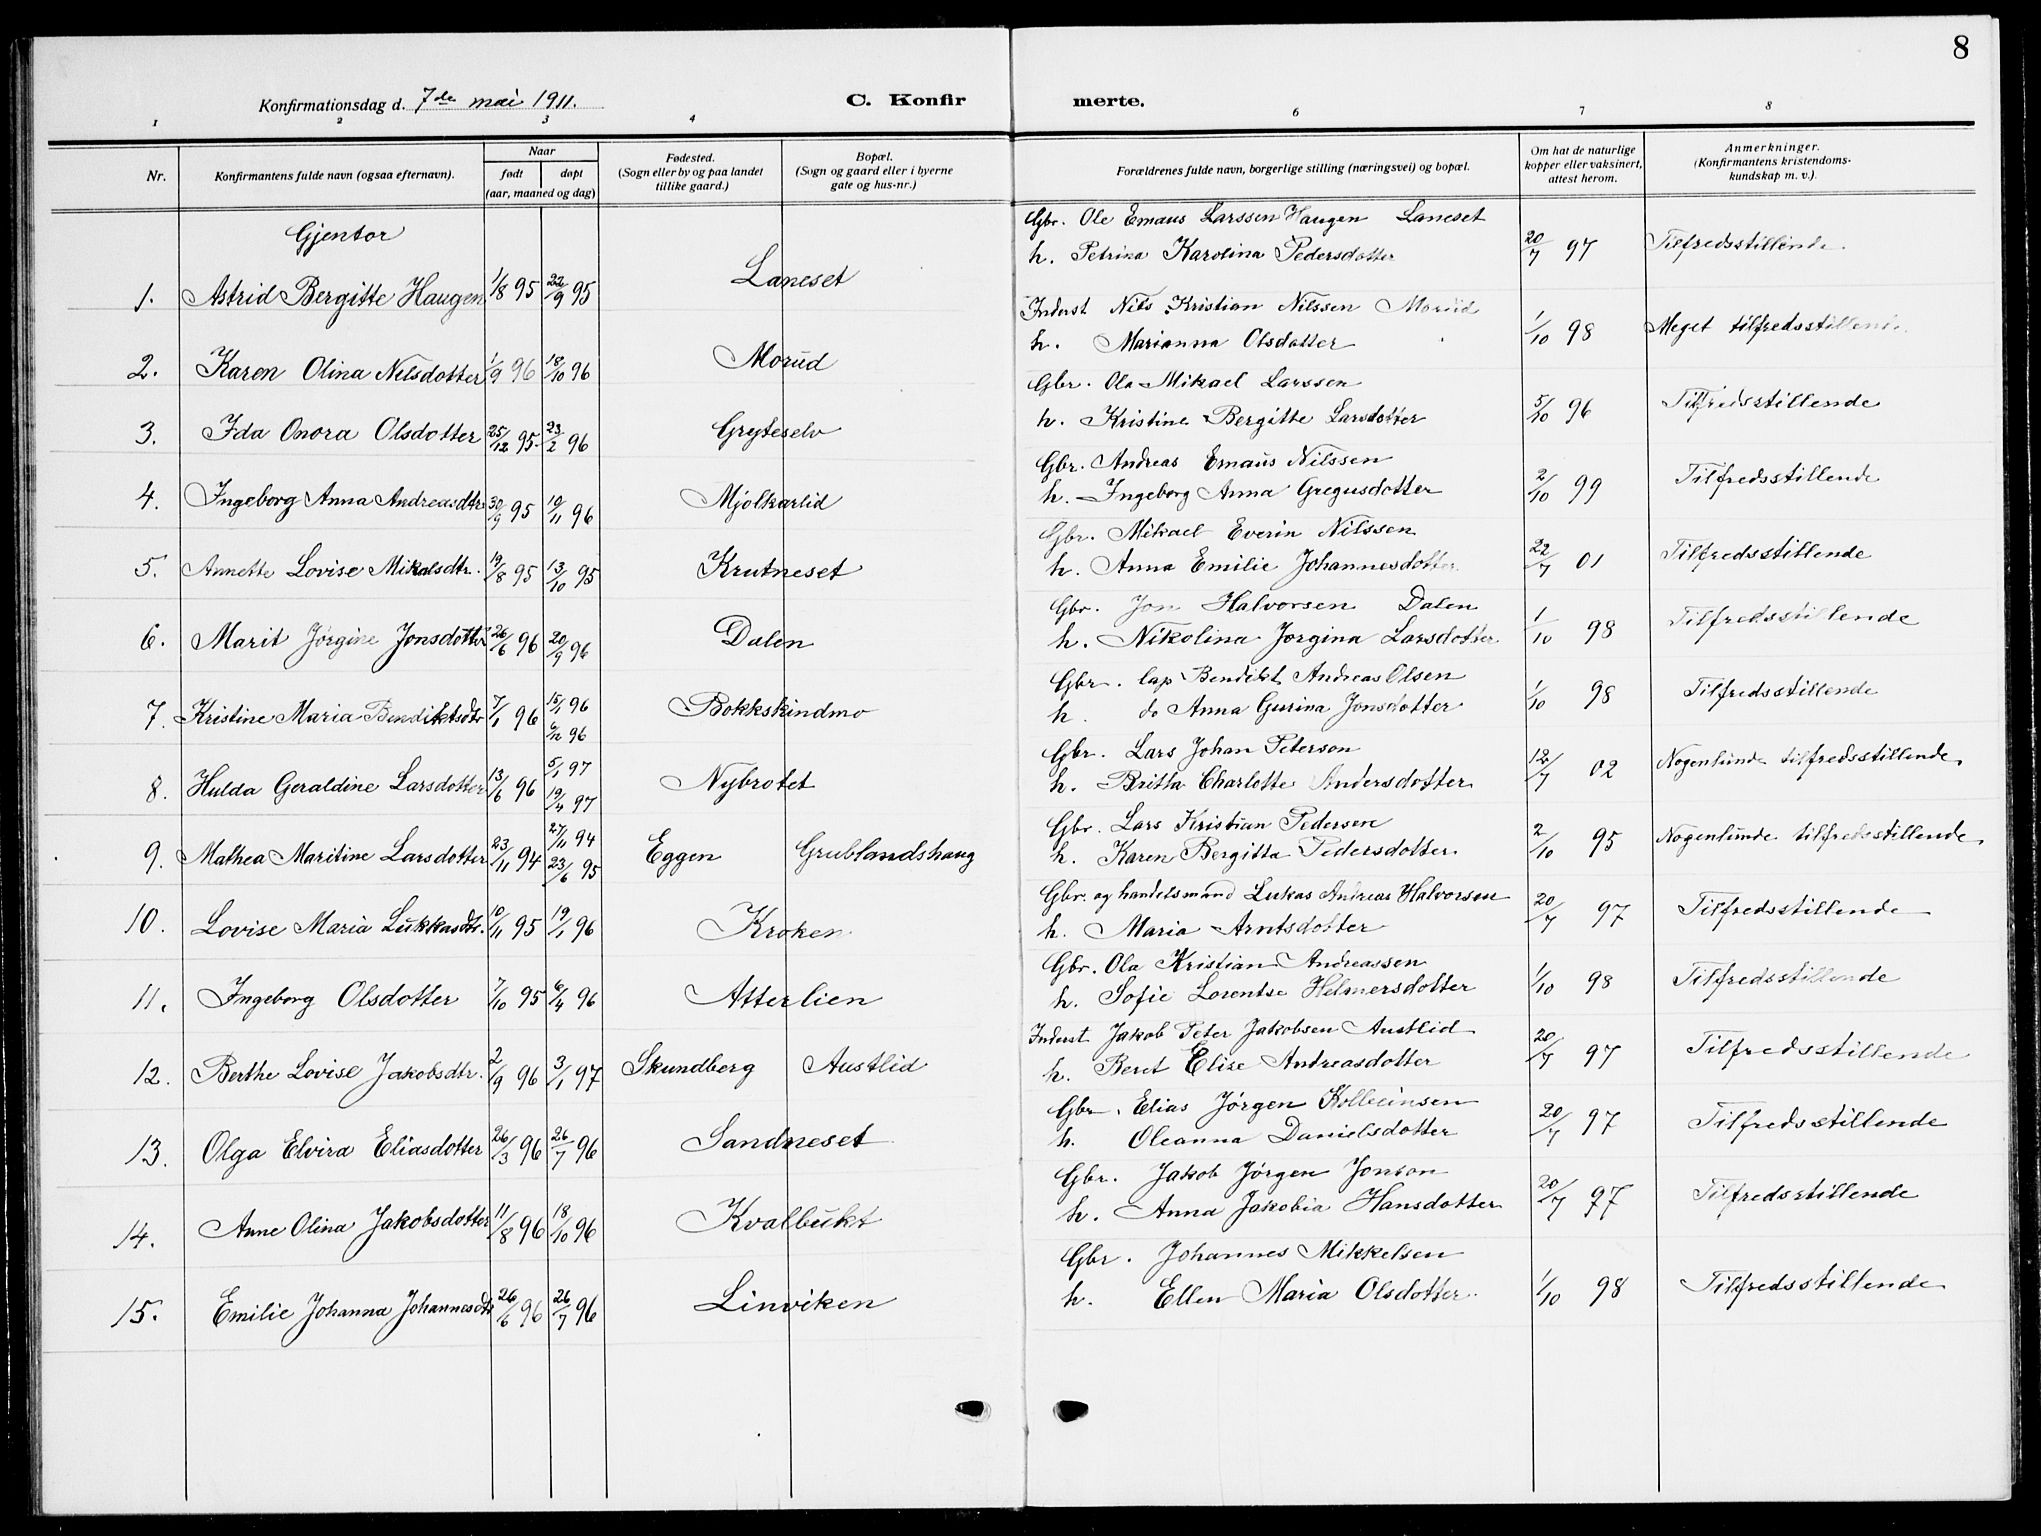 8
Konfirmationsdag d. 7de mai 1911.
C. Konfir
merte.
1 2 3 4 6 7 8
Nr.
Konfirmantens fulde navn (ogsaa efternavn).
Naar
født døpt
(aar, maaned og dag)
Fødested.
(Sogn eller by og paa landet
tillike gaard.)
Bopæl.
(Sogn og gaard eller i byerne
gate og hus-nr.)
Forældrenes fulde navn, borgerlige stilling (næringsvei) og bopæl.
Om hat de naturlige
kopper eller vaksinert,
attest herom.
Anmerkninger.
(Konfirmantens kristendoms-
kundskap m. v.).
Gjentor
1. Astrid Bergitte Haugen 1/8 95 22/9 95 Laneset
Gbr. Ole Emaus Larssen Haugen Laneset
h. Petrina Karolina Pedersdotter 20/7 97 Tilfredsstillende
2. Karen Olina Nilsdotter 1/9 96 18/10 96 Morud
Inderst Nils Kristian Nilssen Morud
h. Marianna Olsdatter 1/10 98 Meget tilfredsstillende
3. Ida Onora Olsdotter 25/12 95 23/2 96 Gryteselv
Gbr. Ola Mikael Larssen
h. Kristine Bergitte Larsdotter 5/10 96 Tilfredsstillende
4. Ingeborg Anna Andreasdtr 30/9 95 10/11 96 Mjolkarlid
Gbr. Andreas Emaus Nilssen
h. Ingeborg Anna Gregusdotter 2/10 99 Tilfredsstillende
5. Annette Lovise Mikalsdtr. 19/8 95 13/10 95 Krutneset
Gbr. Mikael Everin Nilssen
h. Anna Emilie Johannesdotter 22/7 01 Tilfredsstillende
6. Marit Jørgine Jonsdotter 26/6 96 20/9 96 Dalen
Gbr. Jon Halvorsen Dalen
h. Nikolina Jørgina Larsdotter 1/10 98 Tilfredsstillende
7. Kristine Maria Bendiktsdtr 7/1 96 15/1 96 6/12 96 Bokkskindmo
Gbr. lap Bendikt Andreas Olsen
h. do Anna Gurina Jonsdotter 1/10 98 Tilfredsstillende
8. Hulda Geraldine Larsdotter 13/6 96 5/1 97 19/4 97 Nybrotet
Gbr. Lars Johan Peterson
h. Britta Charlotte Andersdotter 12/7 02 Nogenlunde tilfredsstillende
9. Mathea Maritine Larsdotter 23/11 94 27/11 94 23/6 95 Eggen Grublandshaug
Gbr. Lars Kristian Pedersen
h. Karen Bergitta Pedersdotter 2/10 95 Nogenlunde tilfredsstillende
10. Lovise Maria Lukkasdtr. 10/11 95 19/1 96 Kroken
Gbr. og handelsmand Lukas Andreas Halvorsen
h. Maria Arntsdotter 20/7 97 Tilfredsstillende
11. Ingeborg Olsdotter 7/10 95 6/4 96 Atterlien
Gbr. Ola Kristian Andreassen
h. Sofie Lorentse Helmersdotter 1/10 98 Tilfredsstillende
12. Berthe Lovise Jakobsdtr. 2/9 96 3/1 97 Skundberg Austlid
Inderst Jakob Peter Jakobsen Austlid
h. Beret Elise Andreasdotter 20/7 97 Tilfredsstillende
13. Olga Elvira Eliasdotter 26/3 96 26/7 96 Sandneset
Gbr. Elias Jørgen Kolbeinsen
h. Oleanna Danielsdotter 20/7 97 Tilfredsstillende
14. Anne Olina Jakobsdotter 11/8 96 18/10 96 Kvalbukt
Gbr. Jakob Jørgen Jonson
h. Anna Jakobia Hansdotter 20/7 97 Tilfredsstillende
15. Emilie Johanna Johannesdtr 26/6 96 26/7 96 Linviken
Gbr. Johannes Mikkelsen
h. Ellen Maria Olsdotter 1/10 98 Tilfredsstillende